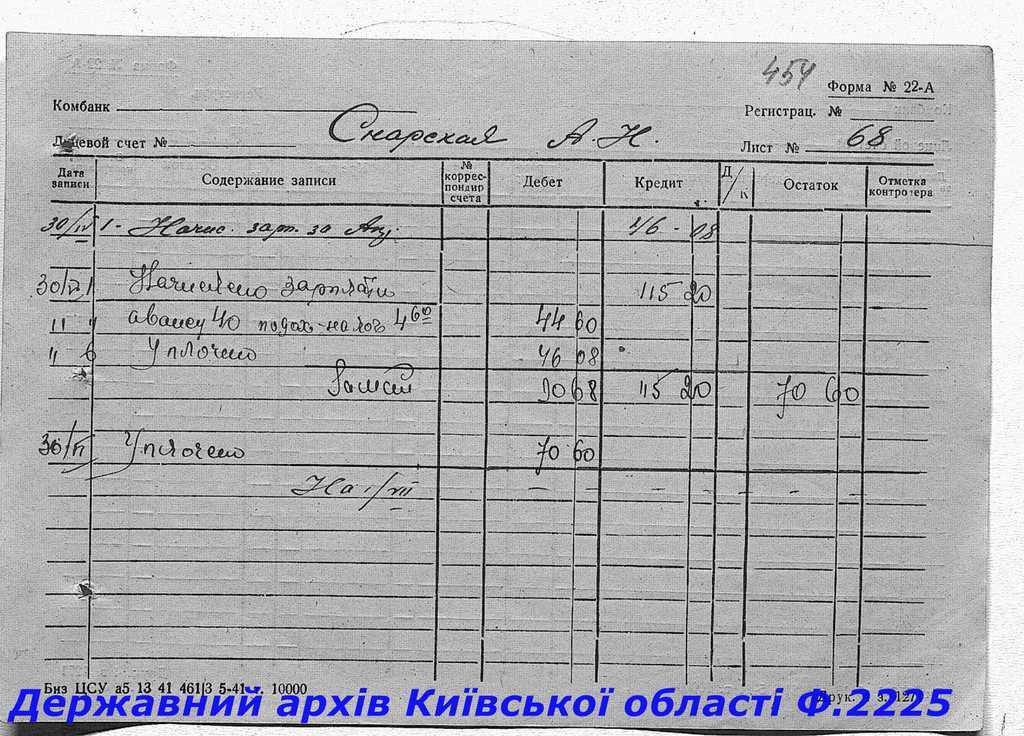 454
Форма № 22-А
Комбанк
Регистрац. №
Лицевой счет № Снарская А. Н.
Лист № 68
Дата записи Содержание записи № коррес-пондир счета Дебет Кредит Д/К Остаток Отметка контролера
30/IV 1- Начис. зарп. за Апр. 46 - 08
30/VI Начислено зарплати 115 20
11 авансу 40 подох-налог 4 60 44 60
Уплочено 46 08
90 68 115 20 70 60
30/VI Уплочено 70 60
На 1/VII - - - - - -
Биз ЦСУ а5 13 41 461/3 5-41 г. 10000
Друк. з. 127
Державний архів Київської області Ф.2225